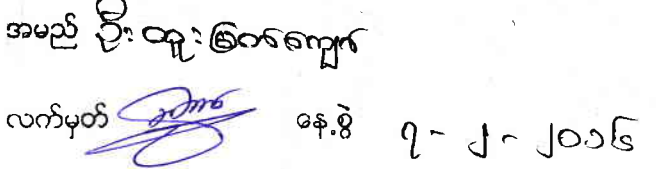 အမည် ဦးထူး
လက်မှတ် နေ့စွဲ ၇ - ၂ - ၂၀၁၆